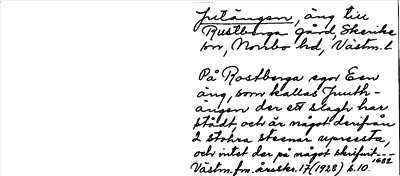 Jutängen, äng till
Rustberga gård, Skerike
sn, Norrbo hd, Västm. l.
På Rostberga egor Een
äng, som kallas Juuth-
ängen der ett slagh har
stådt och är något derifrån
2 stohra steenar upresta,
och intet der på något skrifvit. 1682
Västm. fm. årsskr. 17 (1928) s. 10.